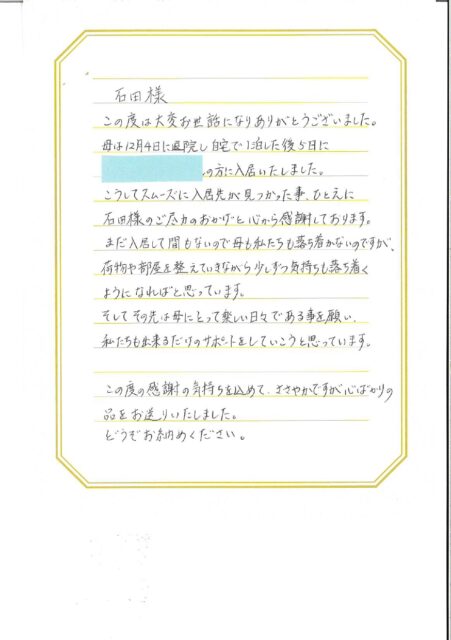 石田様
この度は大変お世話になりありがとうございました。
母は12月4日に退院し自宅で1泊した後5日に
の方に入居いたしました。
こうしてスムーズに入居先が見つかった事、ひとえに
石田様のご尽力のおかげと心から感謝しております。
まだ入居して間もないので母も私たちも落ち着かないのですが、
荷物や部屋を整えていきながら少しずつ気持ちも落ち着く
ようになればと思っています。
そしてその先は母にとって楽しい日々である事を願い、
私たちも出来るだけのサポートをしていこうと思っています。
この度の感謝の気持ちを込めて、ささやかですが心ばかりの
品をお送りいたしました。
どうぞお納めください。